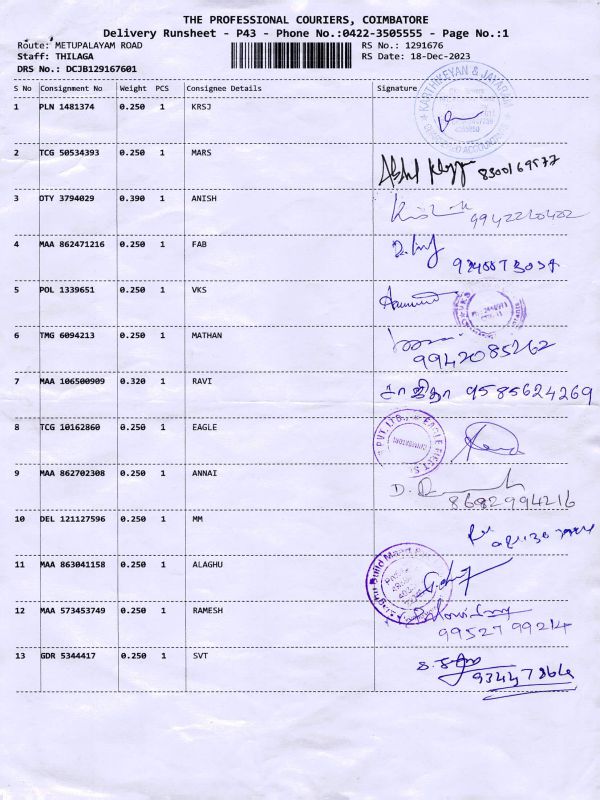 THE PROFESSIONAL COURIERS, COIMBATORE
Delivery Runsheet - P43 - Phone No.:0422-3505555 - Page No.:1
Route: METUPALAYAM ROAD RS No.: 1291676
Staff: THILAGA RS Date: 18-Dec-2023
DRS No.: DCJB129167601
S No Consignment No Weight PCS Consignee Details Signature
KARTHIKEYAN & JAYARAM
1 PLN 1481374 0.250 1 KRSJ
2 TCG 50534393 0.250 1 MARS
8300169577
3 DTY 3794029 0.390 1 ANISH
9942220402
4 MAA 862471216 0.250 1 FAB
5 POL 1339651 0.250 1 VKS
6 TMG 6094213 0.250 1 MATHAN
9942085262
7 MAA 106500909 0.320 1 RAVI
சாஜிதா 9585624269
8 TCG 10162860 0.250 1 EAGLE
9 MAA 862702308 0.250 1 ANNAI
8682994216
10 DEL 121127596 0.250 1 MM
11 MAA 863041158 0.250 1 ALAGHU
12 MAA 573453749 0.250 1 RAMESH
99527 99214
13 GDR 5344417 0.250 1 SVT